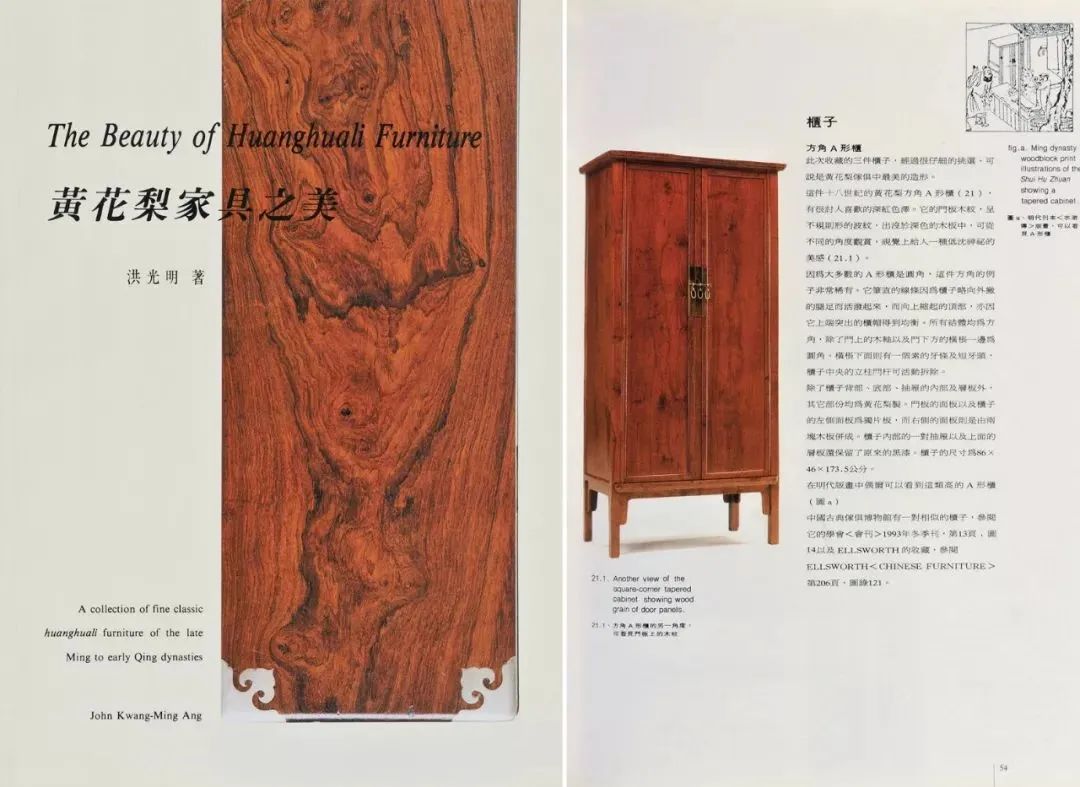 The Beauty of Huanghuali Furniture
黃花梨家具之美
洪光明 著
A collection of fine classic
huanghuali furniture of the late
Ming to early Qing dynasties
John Kwang-Ming Ang
櫃子
方角 A 形櫃
此次收藏的三件櫃子，經過很仔細的挑選，可
說是黃花梨傢俱中最美的造形。
這件十八世紀的黃花梨方角 A 形櫃（21），
有很討人喜歡的深紅色澤。它的門板木紋，呈
不規則形的波紋，出沒於深色的木板中，可從
不同的角度觀賞，視覺上給人一種低沈神祕的
美感（21.1）。
因爲大多數的 A 形櫃是圓角，這件方角的例
子非常稀有。它筆直的線條因爲櫃子略向外撇
的腿足而活潑起來，而向上縮起的頂部，亦因
它上端突出的櫃帽得到均衡。所有結體均爲方
角，除了門上的木軸以及門下方的橫棖一邊爲
圓角。橫棖下面則有一個素的牙條及短牙頭，
櫃子中央的立柱門杆可活動拆除。
除了櫃子背部、底部、抽屜的內部及層板外，
其它部份均爲黃花梨製。門板的面板以及櫃子
的左側面板爲獨片板，而右側的面板則是由兩
塊木板併成。櫃子內部的一對抽屜以及上面的
層板還保留了原來的黑漆。櫃子的尺寸爲86×
46×173.5公分。
在明代版畫中偶爾可以看到這類高的 A 形櫃
（圖a）
中國古典傢俱博物館有一對相似的櫃子，參閱
它的學會＜會刊＞1993年冬季刊，第13頁，圖
14以及 ELLSWORTH 的收藏，參閱
ELLSWORTH＜CHINESE FURNITURE＞
第206頁，圖錄121。
fig.a. Ming dynasty
woodblock print
illustrations of the
Shui Hu Zhuan
showing a
tapered cabinet.
圖a、明代刊本＜水滸
傳＞版畫，可以看
見 A 形櫃
21.1. Another view of the
square-corner tapered
cabinet showing wood
grain of door panels.
21.1、方角 A 形櫃的另一角度，
可看見門板上的木紋
54